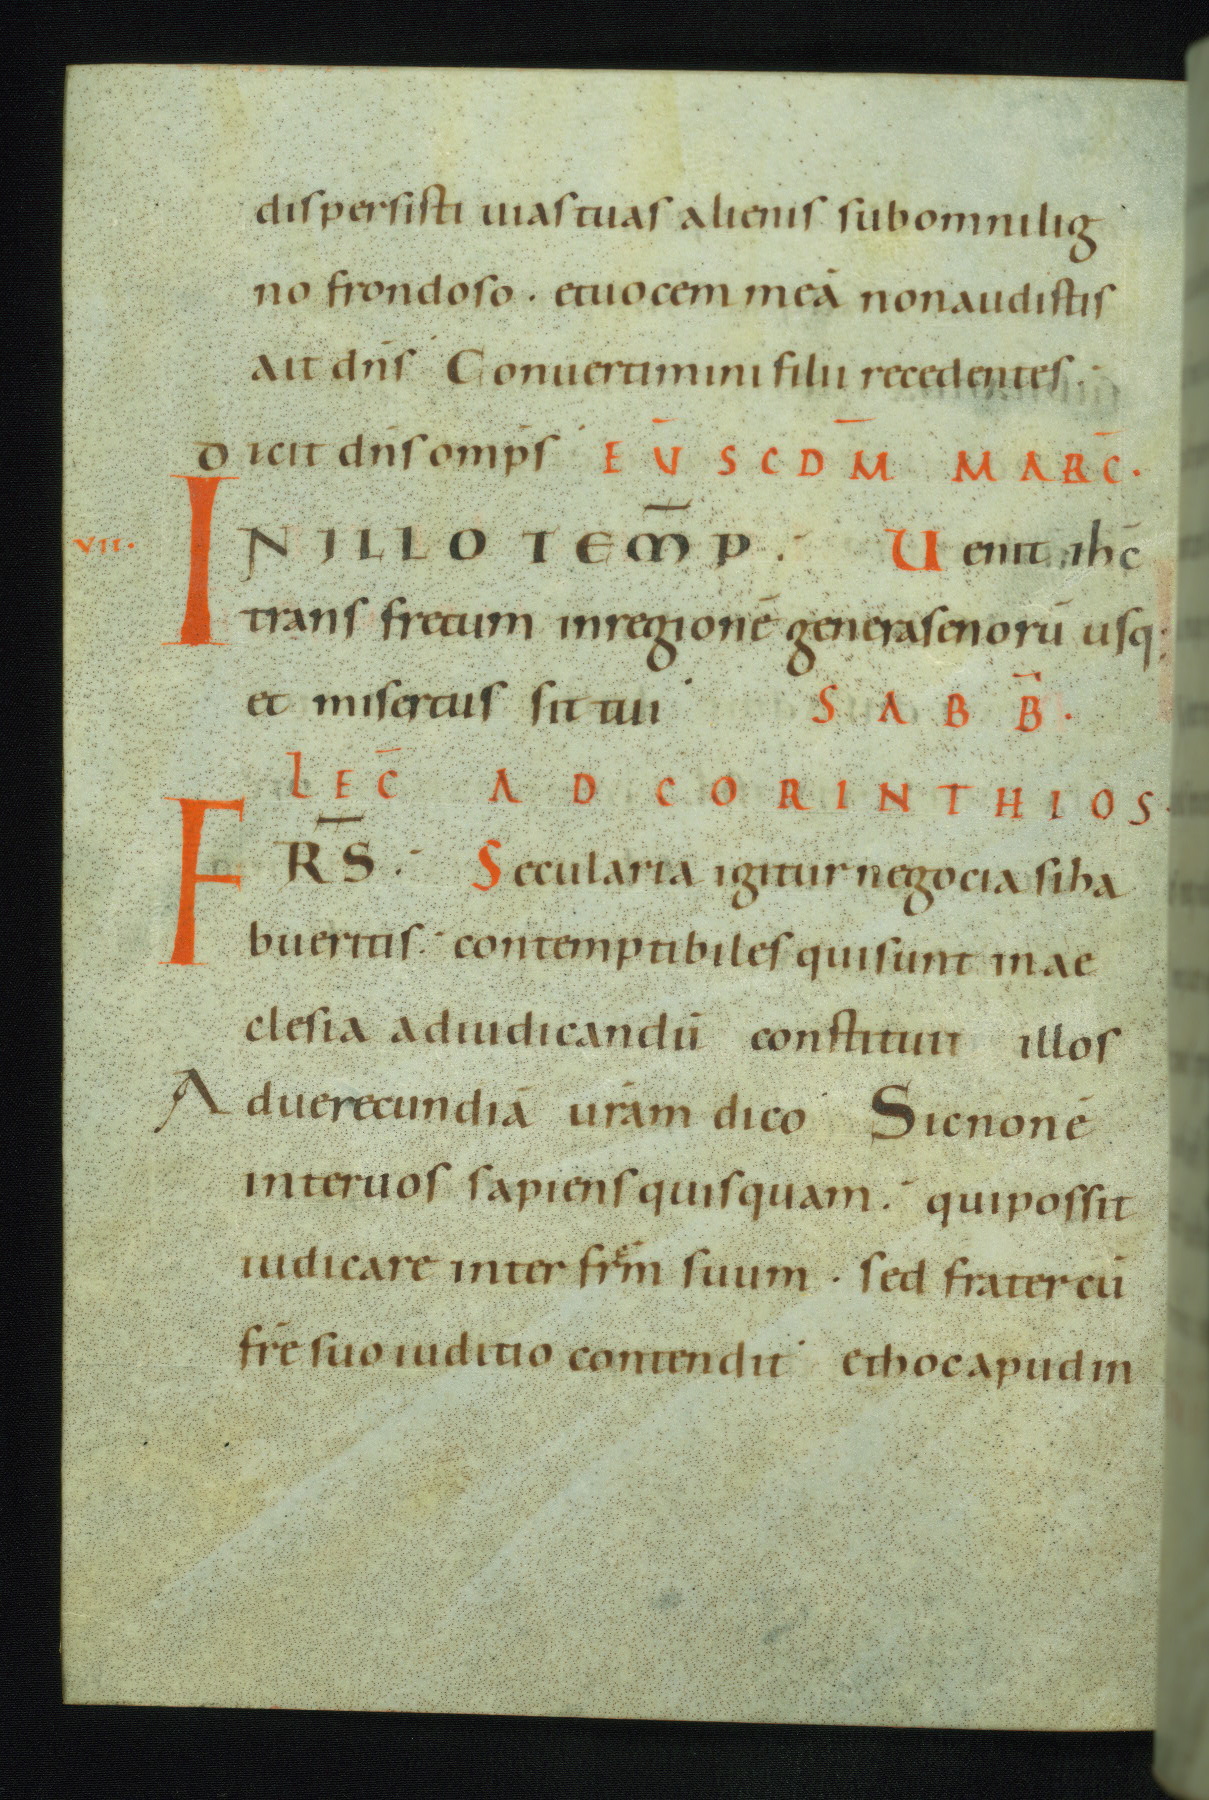 dispersisti uias tuas alienis sub omni lig
no frondoso · et uocem meā non audistis
ait dn̄s Conuertimini filii recedentes ·
Dicit dn̄s omp̄s EŪSCDM̄ MARC̄ ·
VII· IN ILLO TEM̄P · Uenit ih̄c
trans fretum in regionē generasenorū usq;
et misertus sit tui SABB̄ ·
LEC̄ AD CORINTHIOS ·
FR̄S · Secularia igitur negocia si ha
bueritis · contemptibiles qui sunt in ae
clesia ad iudicandū constituit illos
Ad uerecundiā ur̄am dico Sic non ē
inter uos sapiens quisquam · qui possit
iudicare inter fr̄em suum · sed frater cū
fr̄e suo iuditio contendit et hoc apud in